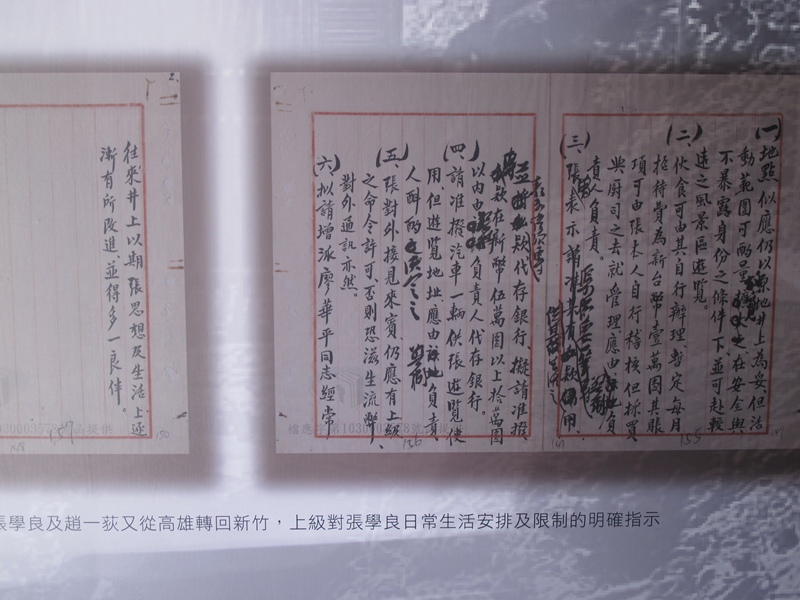 (一)地點似應仍以原地井上為妥但活
動範圍可酌量
在安全與
不暴露身份之條件下並可赴較
遠之風景區遊覽。
(二)伙食可由其自行辦理、暫定每月
招待費為新台幣壹萬圓其賬
項可由張本人自行稽核但採買
與廚司之去就管理、應由
負
責人負責。
(三)張
表示請
款代存銀行、擬請准撥
款在新幣伍萬圓以上拾萬圓
以內由
負責人代存銀行。
(四)請准撥汽車一輛供張遊覽使
用、但遊覽地址、應由該地負責
人酌
(五)張對外接見來賓、仍應有上級
之命令許可、否則恐滋生流弊、
對外通訊亦然。
(六)擬請增派廖華平同志經常
往來井上以期張思想及生活上逐
漸有所改進、並得多一良伴。
157
156
155
張學良及趙一荻又從高雄轉回新竹,上級對張學良日常生活安排及限制的明確指示